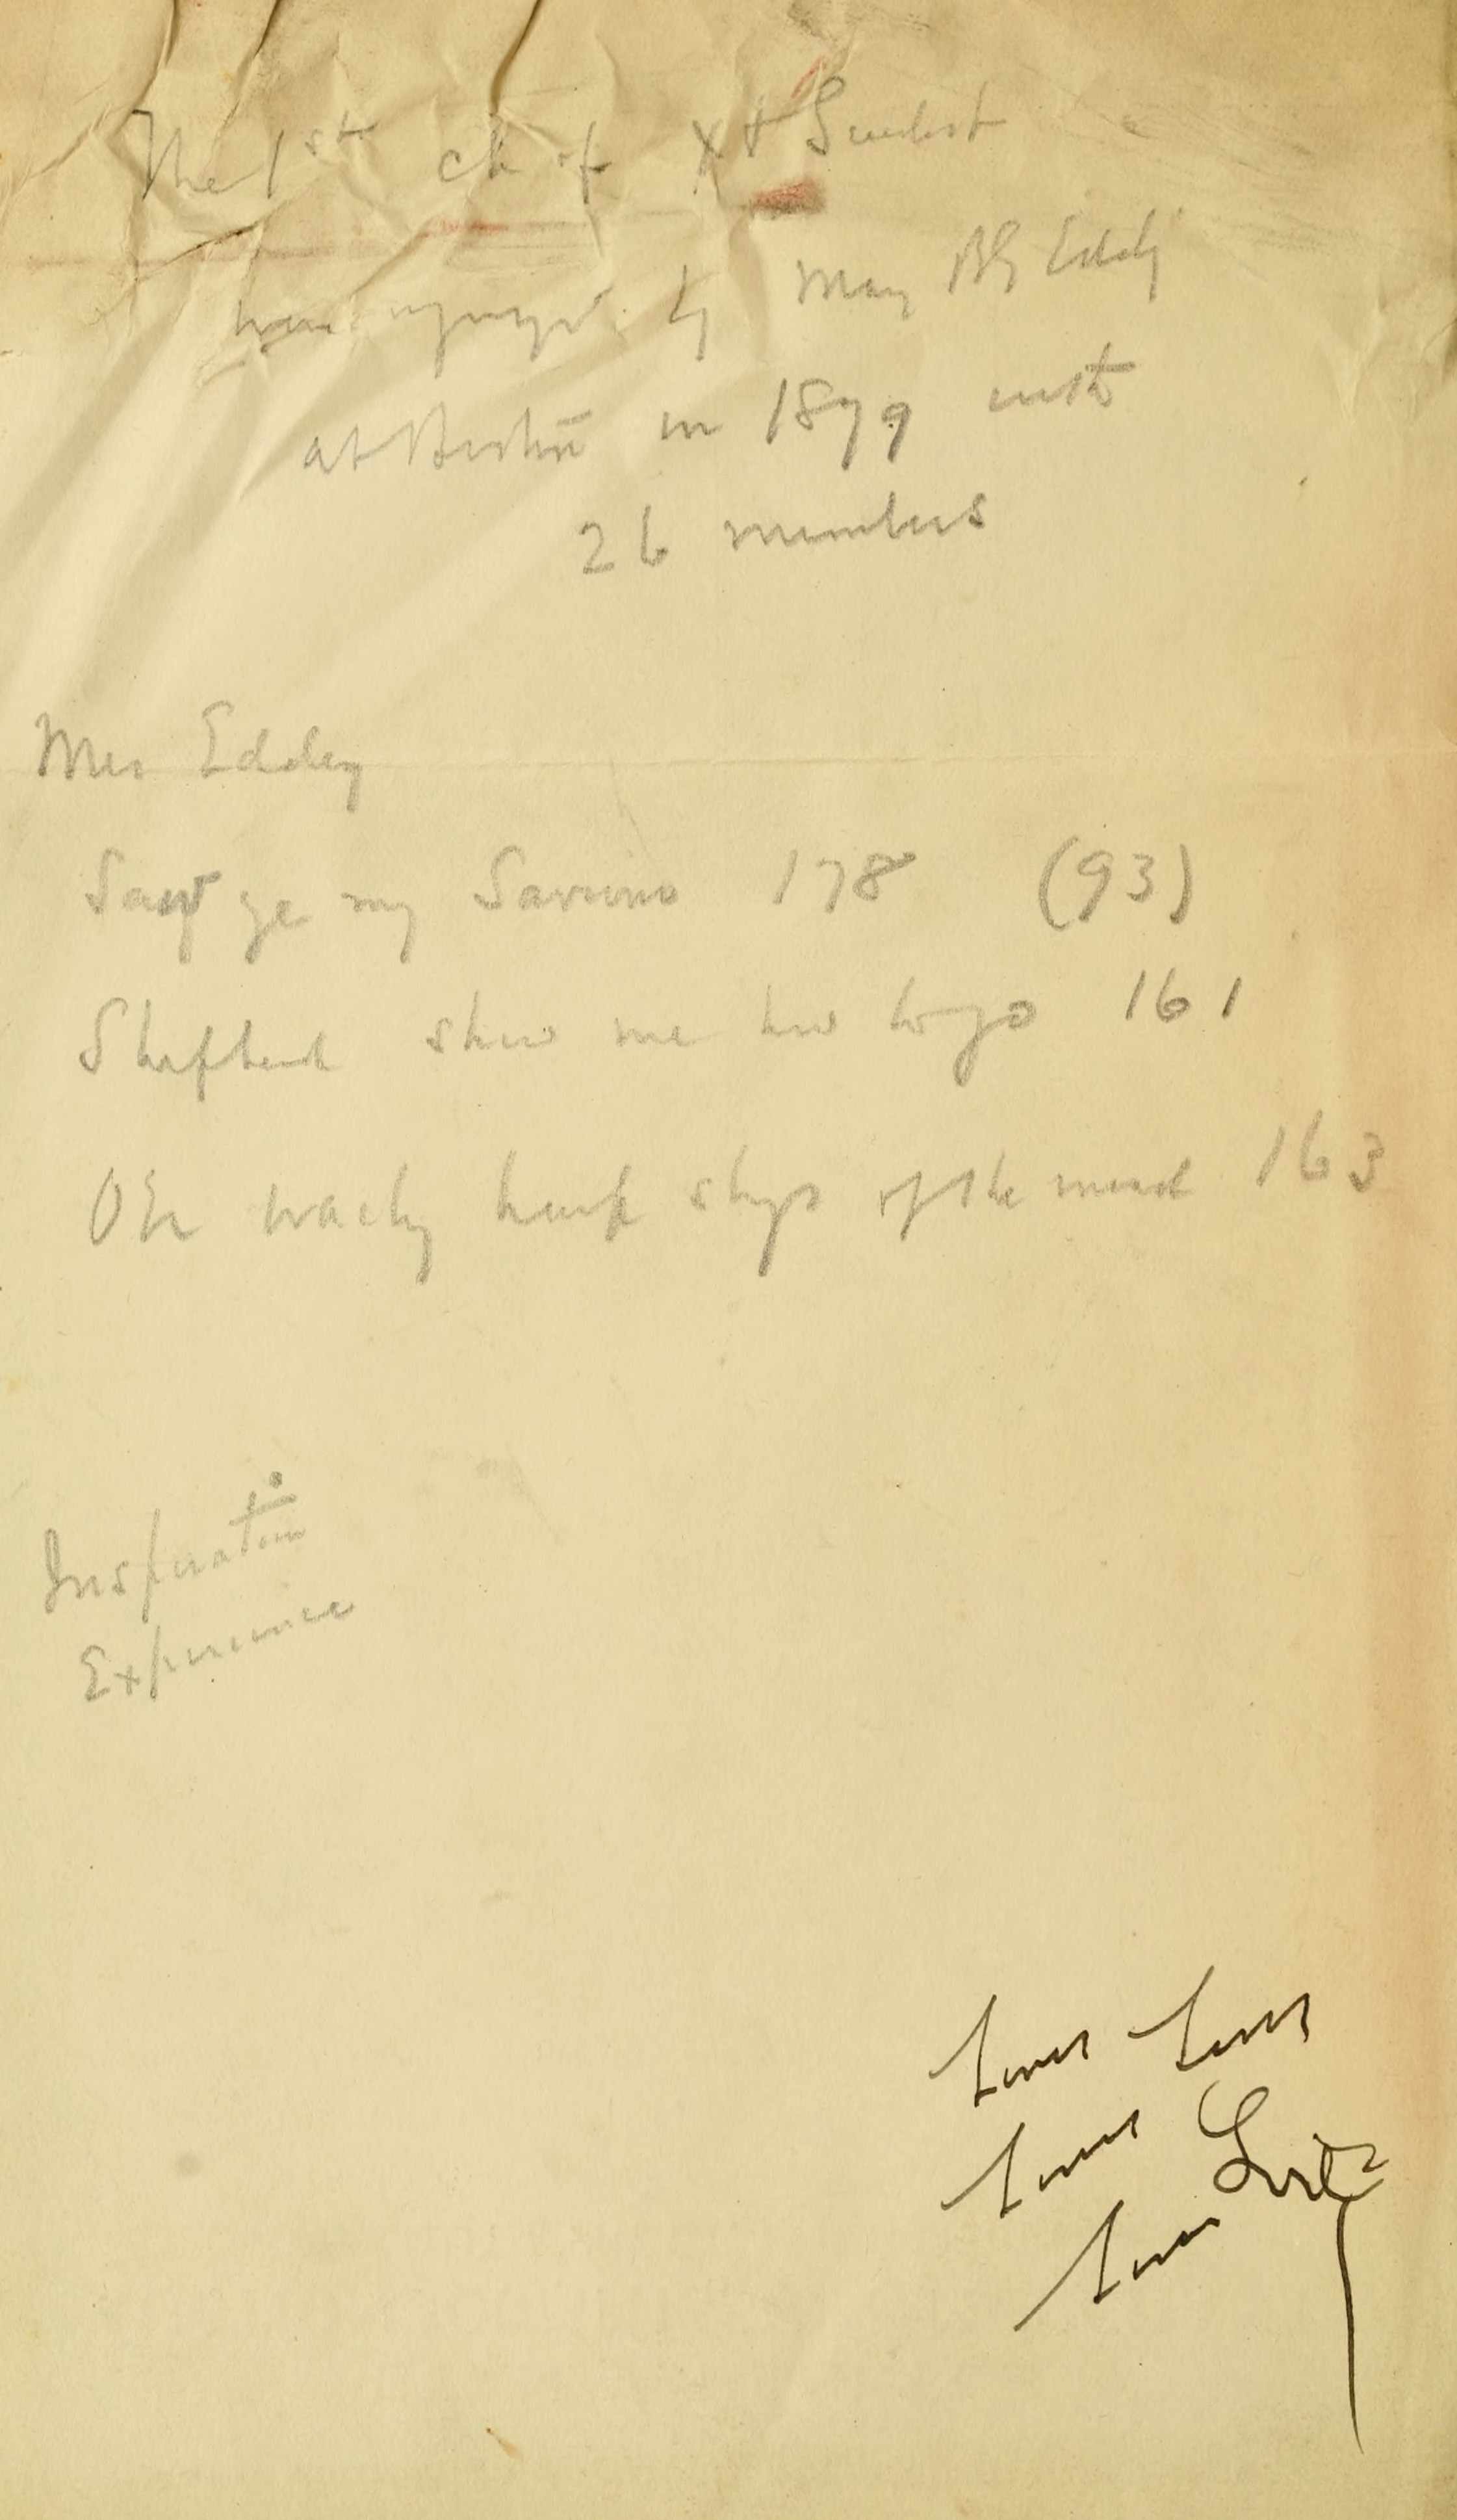 The 1st ch of Xt Scientist
was organized by Mary BG Eddy
at Boston in 1879 with
26 members
Mrs Eddy
Saw ye my Saviour 178 (93)
Shepherd show me how to go 161
Oh waiting harp strings of the mind 163
Inspiration
Experience